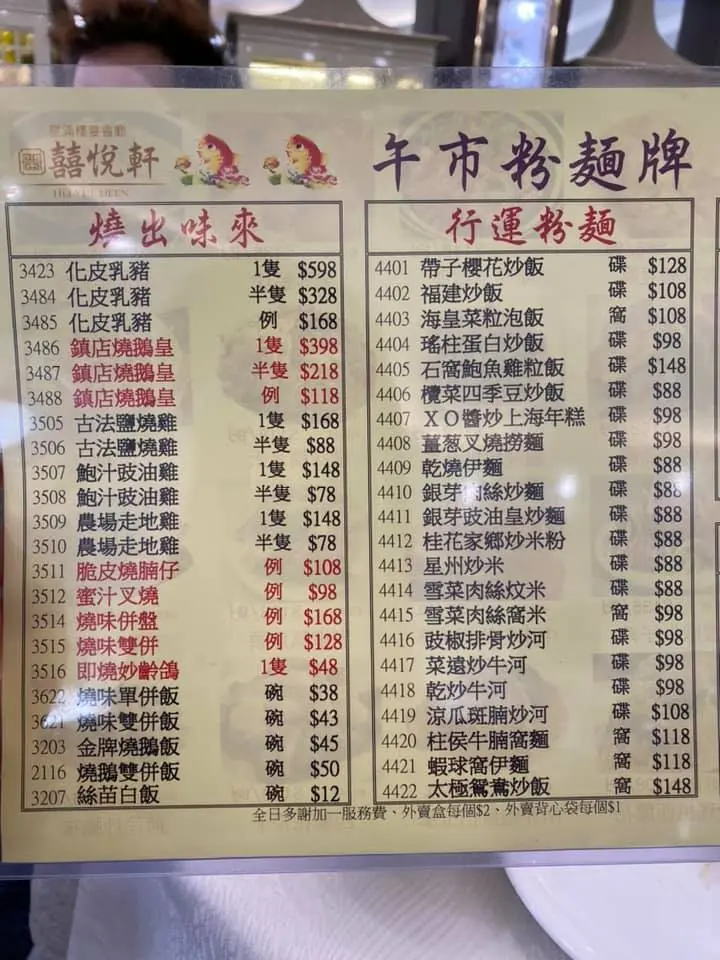 囍悅軒
午市粉麵牌
燒出味來
3423 化皮乳豬 1隻 $598
3484 化皮乳豬 半隻 $328
3485 化皮乳豬 例 $168
3486 鎮店燒鵝皇 1隻 $398
3487 鎮店燒鵝皇 半隻 $218
3488 鎮店燒鵝皇 例 $118
3505 古法鹽燒雞 1隻 $168
3506 古法鹽燒雞 半隻 $88
3507 鮑汁豉油雞 1隻 $148
3508 鮑汁豉油雞 半隻 $78
3509 農場走地雞 1隻 $148
3510 農場走地雞 半隻 $78
3511 脆皮燒腩仔 例 $108
3512 蜜汁叉燒 例 $98
3514 燒味併盤 例 $168
3515 燒味雙併 例 $128
3516 即燒妙齡鴿 1隻 $48
3622 燒味單併飯 碗 $38
3621 燒味雙併飯 碗 $43
3203 金牌燒鵝飯 碗 $45
2116 燒鵝雙併飯 碗 $50
3207 絲苗白飯 碗 $12
行運粉麵
4401 帶子櫻花炒飯 碟 $128
4402 福建炒飯 碟 $108
4403 海皇菜粒泡飯 窩 $108
4404 瑤柱蛋白炒飯 碟 $98
4405 石窩鮑魚雞粒飯 碟 $148
4406 欖菜四季豆炒飯 碟 $88
4407 ＸＯ醬炒上海年糕 碟 $98
4408 薑葱叉燒撈麵 碟 $98
4409 乾燒伊麵 碟 $88
4410 銀芽肉絲炒麵 碟 $88
4411 銀芽豉油皇炒麵 碟 $88
4412 桂花家鄉炒米粉 碟 $88
4413 星州炒米 碟 $88
4414 雪菜肉絲炆米 碟 $88
4415 雪菜肉絲窩米 窩 $98
4416 豉椒排骨炒河 碟 $98
4417 菜遠炒牛河 碟 $98
4418 乾炒牛河 碟 $98
4419 涼瓜斑腩炒河 碟 $108
4420 柱侯牛腩窩麵 窩 $118
4421 蝦球窩伊麵 窩 $118
4422 太極鴛鴦炒飯 窩 $148
全日多謝加一服務費、外賣盒每個$2、外賣背心袋每個$1